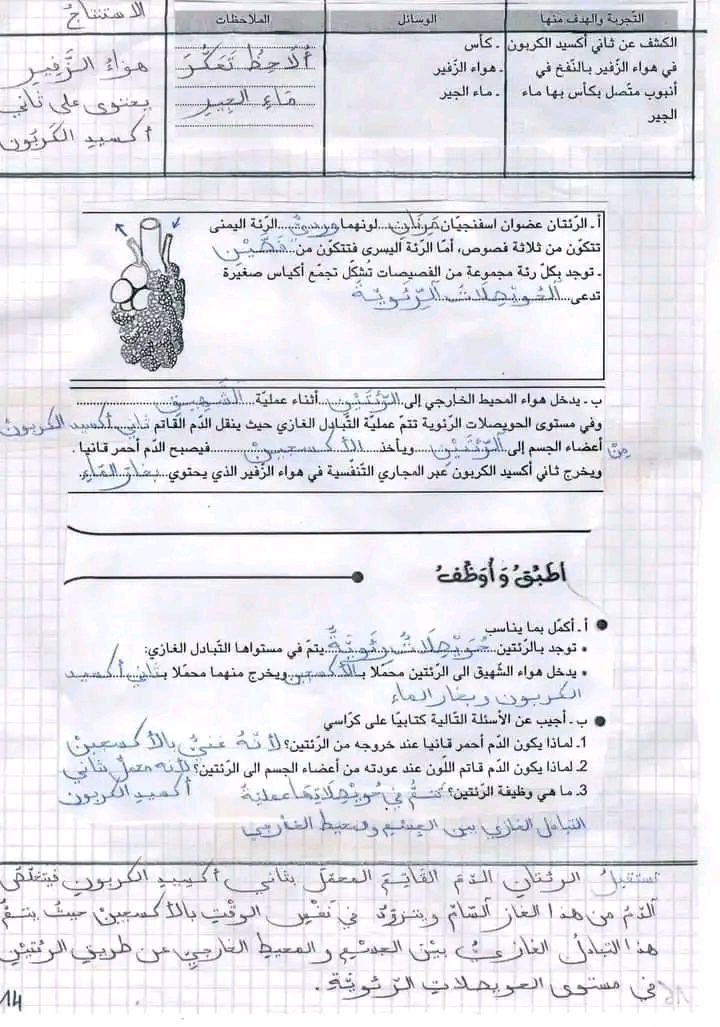 التّجربة والهدف منها الوسائل الملاحظات الاستنتاج
الكشف عن ثاني أكسيد الكربون ـ كأس ألاحظ تعكّر هواء الزّفير
في هواء الزّفير بالنّفخ في ـ هواء الزّفير ماء الجير يحتوي على ثاني
أنبوب متّصل بكأس بها ماء ـ ماء الجير أكسيد الكربون
الجير
أ ـ الرّئتان عضوان اسفنجيّان مرنان لونهما وردي الرّئة اليمنى
تتكوّن من ثلاثة فصوص، أمّا الرّئة اليسرى فتتكوّن من فصّين
ـ توجد بكلّ رئة مجموعة من الفصيصات تُشكّل تجمّع أكياس صغيرة
تدعى الحويصلات الرّئويّة
ب ـ يدخل هواء المحيط الخارجي إلى الرّئتين أثناء عمليّة الشّهيق
وفي مستوى الحويصلات الرّئوية تتمّ عمليّة التّبادل الغازي حيث ينقل الدّم القاتم ثاني أكسيد الكربون
من أعضاء الجسم إلى الرّئتين ويأخذ الأكسجين فيصبح الدّم أحمر قانيا .
ويخرج ثاني أكسيد الكربون عبر المجاري التّنفّسية في هواء الزّفير الذي يحتوي بخار الماء.
أطبّق وأوظّف
أ ـ أكمل بما يناسب
• توجد بالرّئتين حويصلات رئويّة يتمّ في مستواها التّبادل الغازي:
• يدخل هواء الشّهيق الى الرّئتين محمّلا بالأكسجين ويخرج منهما محمّلا بثاني أكسيد
الكربون وبخار الماء
ب ـ أجيب عن الأسئلة التّالية كتابيّا على كرّاسي
1. لماذا يكون الدّم أحمر قانيا عند خروجه من الرّئتين؟ لأنّه غنيّ بالأكسجين
2. لماذا يكون الدّم قاتم اللّون عند عودته من أعضاء الجسم الى الرّئتين؟ لأنه محمل بثاني
أكسيد الكربون
3. ما هي وظيفة الرّئتين؟ تتمّ في حويصلاتها عمليّة
التبادل الغازي بين الجسم والمحيط الخارجي
تستقبل الرئتان الدّم القاتم المحمّل بثاني أكسيد الكربون فيتخلّص
الدّم من هذا الغاز السّام ويتزوّد في نفس الوقت بالأكسجين حيث يتمّ
هذا التبادل الغازيّ بين الجسم والمحيط الخارجيّ عن طريق الرّئتين
في مستوى الحويصلات الرّئويّة.
14